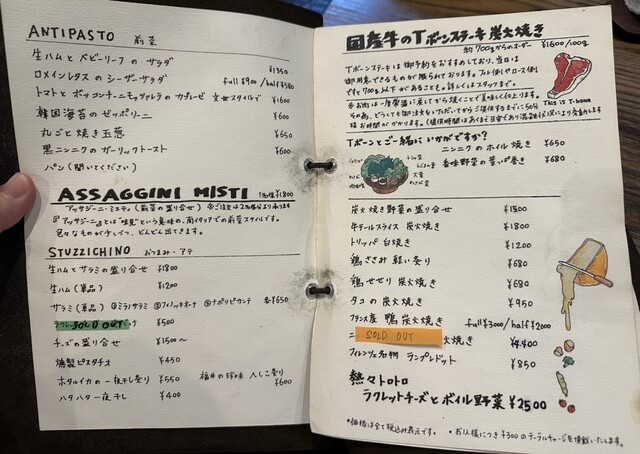 ANTIPASTO 前菜
生ハムとベビーリーフの サラダ ¥1350
ロメインレタスの シーザーサラダ full ¥900 / half ¥580
トマトと ボッコンチーニモッツァレラの カプレーゼ 文世スタイルで ¥1600
韓国海苔の ゼッポリーニ ¥600
丸ごと 焼き玉葱 ¥650
黒ニンニクの ガーリックトースト ¥600
パン (聞いてください)
ASSAGGINI MISTI 1名様 ¥1800
アッサジーニ・ミスティ (前菜の盛り合せ) ※ご注文は2名様より承ります
『アッサジーニ』とは"味見"という意味の、南イタリアでの前菜スタイルです。
色々なものが少しづつ、どんどん出てきます。
STUZZICHINO おつまみ・アテ
生ハムとサラミの盛り合せ ¥1800
生ハム (単品) ¥1200
サラミ (単品) ①ミラノサラミ ②フィノッキオーナ ③ナポリピカンテ 各¥650
SOLD OUT ¥500
チーズの盛り合せ ¥1500〜
燻製ピスタチオ ¥450
ホタルイカの一夜干し炙り ¥550
福井の珍味 へしこ炙り ¥600
ハタハタ一夜干し ¥400
国産牛のTボーンステーキ 炭火焼き
約700gからのオーダー ¥1600/100g
Tボーンステーキは 御予約をおすすめしており、当日は
御用意できるものが限られております。フィレ側やロース側
ですと700g以下があることも。詳しくはスタッフまで。
※お肉は一度常温に戻してから焼くことで美味しく仕上ります。
その為、どうしても御注文をいただいてからご提供するまでに50分
ほどお時間がかかります。(提供時間はあくまで目安であり混雑状況により変動します)
This is T-bone
Tボーンとご一緒に いかがですか?
ニンニクの ホイル焼き ¥650
香味野菜の 葉っぱ巻き ¥680
炭火焼き野菜の盛り合せ ¥1500
牛テールスライス 炭火焼き ¥1800
トリッパ 白焼き ¥1200
鶏ささみ 軽い炙り ¥680
鶏せせり 炭火焼き ¥680
タコの 炭火焼き ¥950
フランス産 鴨 炭火焼き full ¥3000 / half ¥2000
SOLD OUT 火焼き ¥4400
フィレンツェ名物 ランプレドット ¥850
熱々トロトロ
ラクレットチーズとボイル野菜 ¥2500
*価格は全て税込み表示です。 *お1人様につき ¥300のテーブルチャージを頂戴いたします。